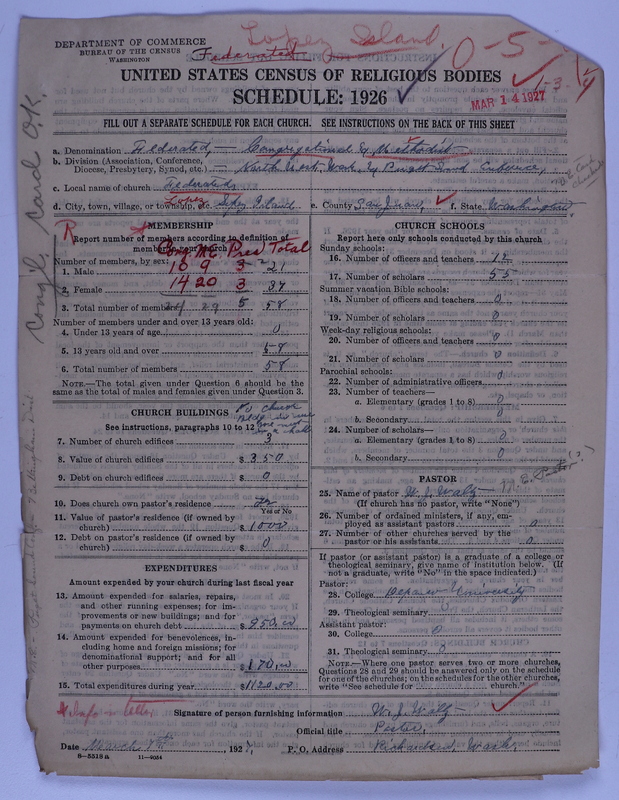 Lopez Island
0-5-
DEPARTMENT OF COMMERCE
BUREAU OF THE CENSUS
WASHINGTON
Federated
UNITED STATES CENSUS OF RELIGIOUS BODIES
SCHEDULE: 1926
MAR 14 1927
FILL OUT A SEPARATE SCHEDULE FOR EACH CHURCH. SEE INSTRUCTIONS ON THE BACK OF THIS SHEET
a. Denomination Federated, Congregational & Methodist
b. Division (Association, Conference,
Diocese, Presbytery, Synod, etc.) North West Wash. & Puget Sound Conference,
c. Local name of church Federated,
d. City, town, village, or township, etc. Lopez Island e. County San Juan, f. State Washington
Cong'l Card OK.
R
MEMBERSHIP
Report number of members according to definition of
member in your church
Cong. M.E. Pres Total
Number of members, by sex:
1. Male 16 9 3 21
2. Female 14 20 3 37
3. Total number of members 29 5 58
Number of members under and over 13 years old:
4. Under 13 years of age 0
5. 13 years old and over 58
6. Total number of members 58
NOTE.—The total given under Question 6 should be the
same as the total of males and females given under Question 3.
CHURCH BUILDINGS
See instructions, paragraphs 10 to 12
7. Number of church edifices 3
8. Value of church edifices $ 350
9. Debt on church edifices $ 0
10. Does church own pastor's residence
Yes or No
11. Value of pastor's residence (if owned by
church) $ 1000
12. Debt on pastor's residence (if owned by
church) $ 0
EXPENDITURES
Amount expended by your church during last fiscal year
13. Amount expended for salaries, repairs,
and other running expenses; for im-
provements or new buildings; and for
payments on church debt $ 950.00
14. Amount expended for benevolences, in-
cluding home and foreign missions; for
denominational support; and for all
other purposes $ 170.00
15. Total expenditures during year $ 1120.00
CHURCH SCHOOLS
Report here only schools conducted by this church
Sunday schools:
16. Number of officers and teachers
17. Number of scholars 55
Summer vacation Bible schools:
18. Number of officers and teachers 0
19. Number of scholars 0
Week-day religious schools:
20. Number of officers and teachers 0
21. Number of scholars 0
Parochial schools:
22. Number of administrative officers 0
23. Number of teachers—
a. Elementary (grades 1 to 8) 0
b. Secondary 0
24. Number of scholars—
a. Elementary (grades 1 to 8) 0
b. Secondary 0
PASTOR
25. Name of pastor W. J. Waltz M. E. Pastor(?)
(If church has no pastor, write "None")
26. Number of ordained ministers, if any, em-
ployed as assistant pastors 0
27. Number of other churches served by the
pastor or his assistants 0
If pastor (or assistant pastor) is a graduate of a college or
theological seminary, give name of institution below. (If
not a graduate, write "No" in the space indicated.)
Pastor:
28. College Depauw University
29. Theological seminary 0
Assistant pastor:
30. College 0
31. Theological seminary 0
NOTE.—Where one pastor serves two or more churches,
Questions 28 and 29 should be answered only on the schedule
for one of the churches; on the schedules for the other churches,
write "See schedule for church."
* Info in letter
Signature of person furnishing information W. J. Waltz
Official title Pastor,
Date March 8th 192 P. O. Address Richardson, Wash,
8-5518 a 11-9054